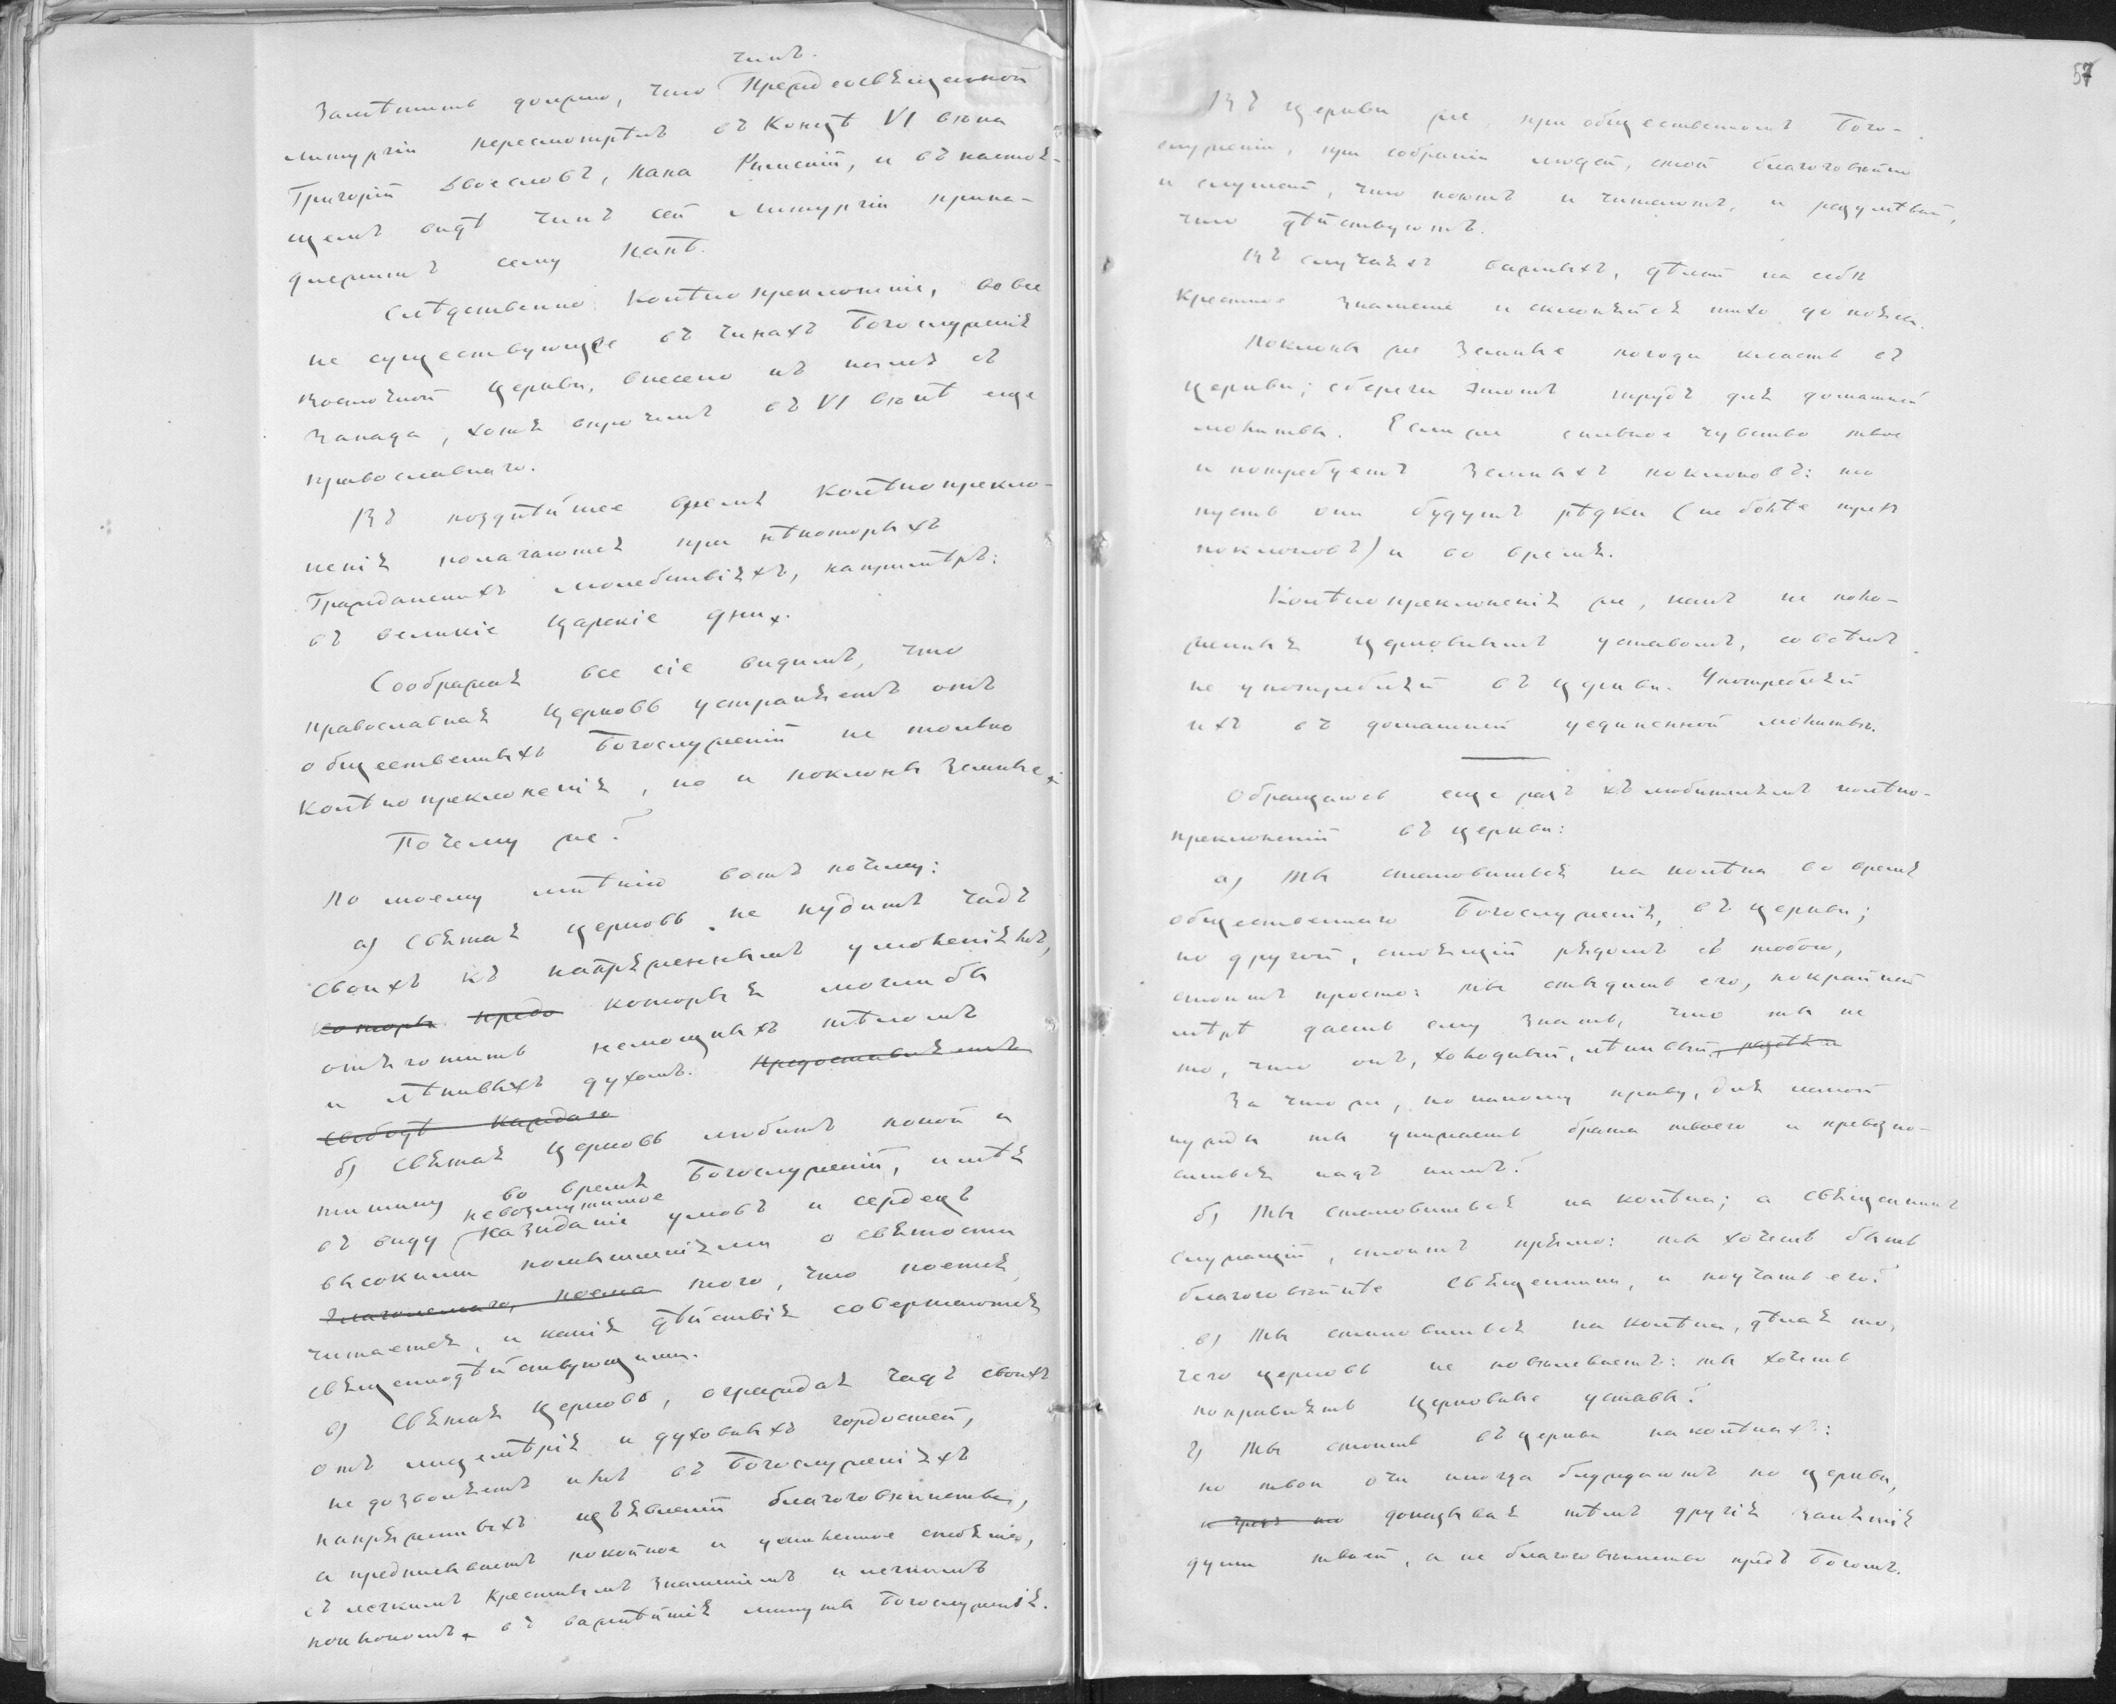 чинъ
Замѣтить должно, что Преждеосвѣщенной
литургіи пересмотрѣлъ въ Концѣ VI вѣка
Григорій Двоесловъ, папа Римскій, и въ настоя-
щемъ видѣ чинъ сей Литургіи прина-
длежитъ сему Папѣ.
Слѣдственно Колѣнопреклоненіе, вовсе
не существующее въ чинахъ Богослуженія
Восточной Церкви, внесено къ намъ съ
Запада, хотя впрочемъ въ VI вѣкѣ еще
православнаго.
Въ позднѣйшее время Колѣнопрекло-
ненія полагаются при нѣкоторыхъ
Гражданскихъ молебствіяхъ, напримѣръ:
въ великіе Царскіе дни.
Соображая все сіе видимъ, что
православная Церковь устраняетъ отъ
общественныхъ Богослуженій не только
Колѣнопреклоненія, но и поклоны Земные.
Почему же?
По моему мнѣнію вотъ почему:
а) Святая Церковь не нудитъ чадъ
своихъ къ напряженнымъ умоленіямъ,
которы предо которыя могли бы
отяготить немощныхъ тѣломъ
и лѣнивыхъ духомъ. Предоставляетъ
свободѣ каждаго
б) Святая Церковь любитъ покой и
тишину во время Богослуженій, имѣя
невозмутимое
въ виду назиданіе умовъ и сердецъ
высокими помышленіями о святости
глаголемаго, поема того, что поется,
читается, и какія дѣйствія совершаются
священнодѣйствующими.
в) Святая Церковь, ограждая чадъ своихъ
отъ лицемѣрія и духовныхъ гордостей,
не дозволяетъ имъ въ Богослуженіяхъ
напряженныхъ изъявленій благоговѣинства,
а предписываетъ покойное и умиленное стояніе,
съ легкимъ Крестнымъ Знаменіемъ и легкимъ
поклономъ въ важнѣйшія минуты Богослуженія.
57
Въ Церкви же, при общественномъ Бого-
служеніи, при собраніи людей, стой благоговѣйно
и слушай, что поютъ и читаютъ, и разумѣвай,
что дѣйствуютъ.
Въ случаяхъ важныхъ, дѣлай на себѣ
Крестное Знаменіе и склоняйся тихо до пояса.
Поклоны же Земные погоди класть въ
Церкви; сбереги этотъ трудъ для домашней
молитвы. Если же сильное чувство твое
и потребуетъ Земныхъ поклоновъ: то
пусть они будутъ рѣдки (не болѣе трехъ
поклоновъ) и во время.
Колѣнопреклоненія же, какъ не поло-
женныя Церковнымъ уставомъ, совсѣмъ
не употребляй въ Церкви. Употребляй
ихъ въ домашней уединенной молитвѣ.
Обращаюсь еще разъ къ любителямъ колѣно-
преклоненій въ церкви:
а) Ты становишься на колѣна во время
общественнаго Богослуженія, въ Церкви;
но другой, стоящій рядомъ съ тобою,
стоитъ просто: ты стыдишь его, покрайней
мѣрѣ даешь ему знать, что ты не
то, что онъ, холодный, лѣнивый,
За что же, по какому праву, для какой
нужды ты унижаешь брата твоего и превозно-
сишься надъ нимъ?
б) Ты становишься на колѣна; а Священникъ
служащій, стоитъ прямо: ты хочешь быть
благоговѣйнѣе Священника, и поучать его?
в) Ты становишься на Колѣна, дѣлая то,
чего церковь не повѣлеваетъ: ты хочешь
поправлять Церковные уставы?
г) Ты стоишь въ Церкви на колѣнахъ:
но твои очи иногда блуждаютъ по Церкви,
доказывая тѣмъ другія занятія
души твоей, а не благоговѣинство предъ Богомъ.